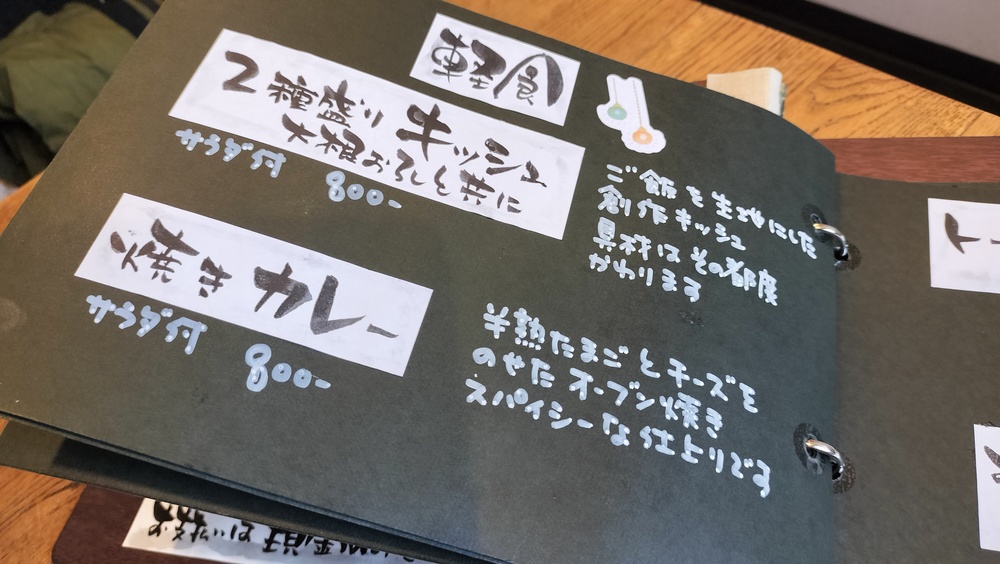 軽食
2種盛り キッシュ
大根おろしと共に
サラダ付 800-
ご飯を生地にした
創作キッシュ
具材はその都度
かわります
焼きカレー
サラダ付 800-
半熟たまごとチーズを
のせたオーブン焼き
スパイシーな仕上りです
お支払いは現金